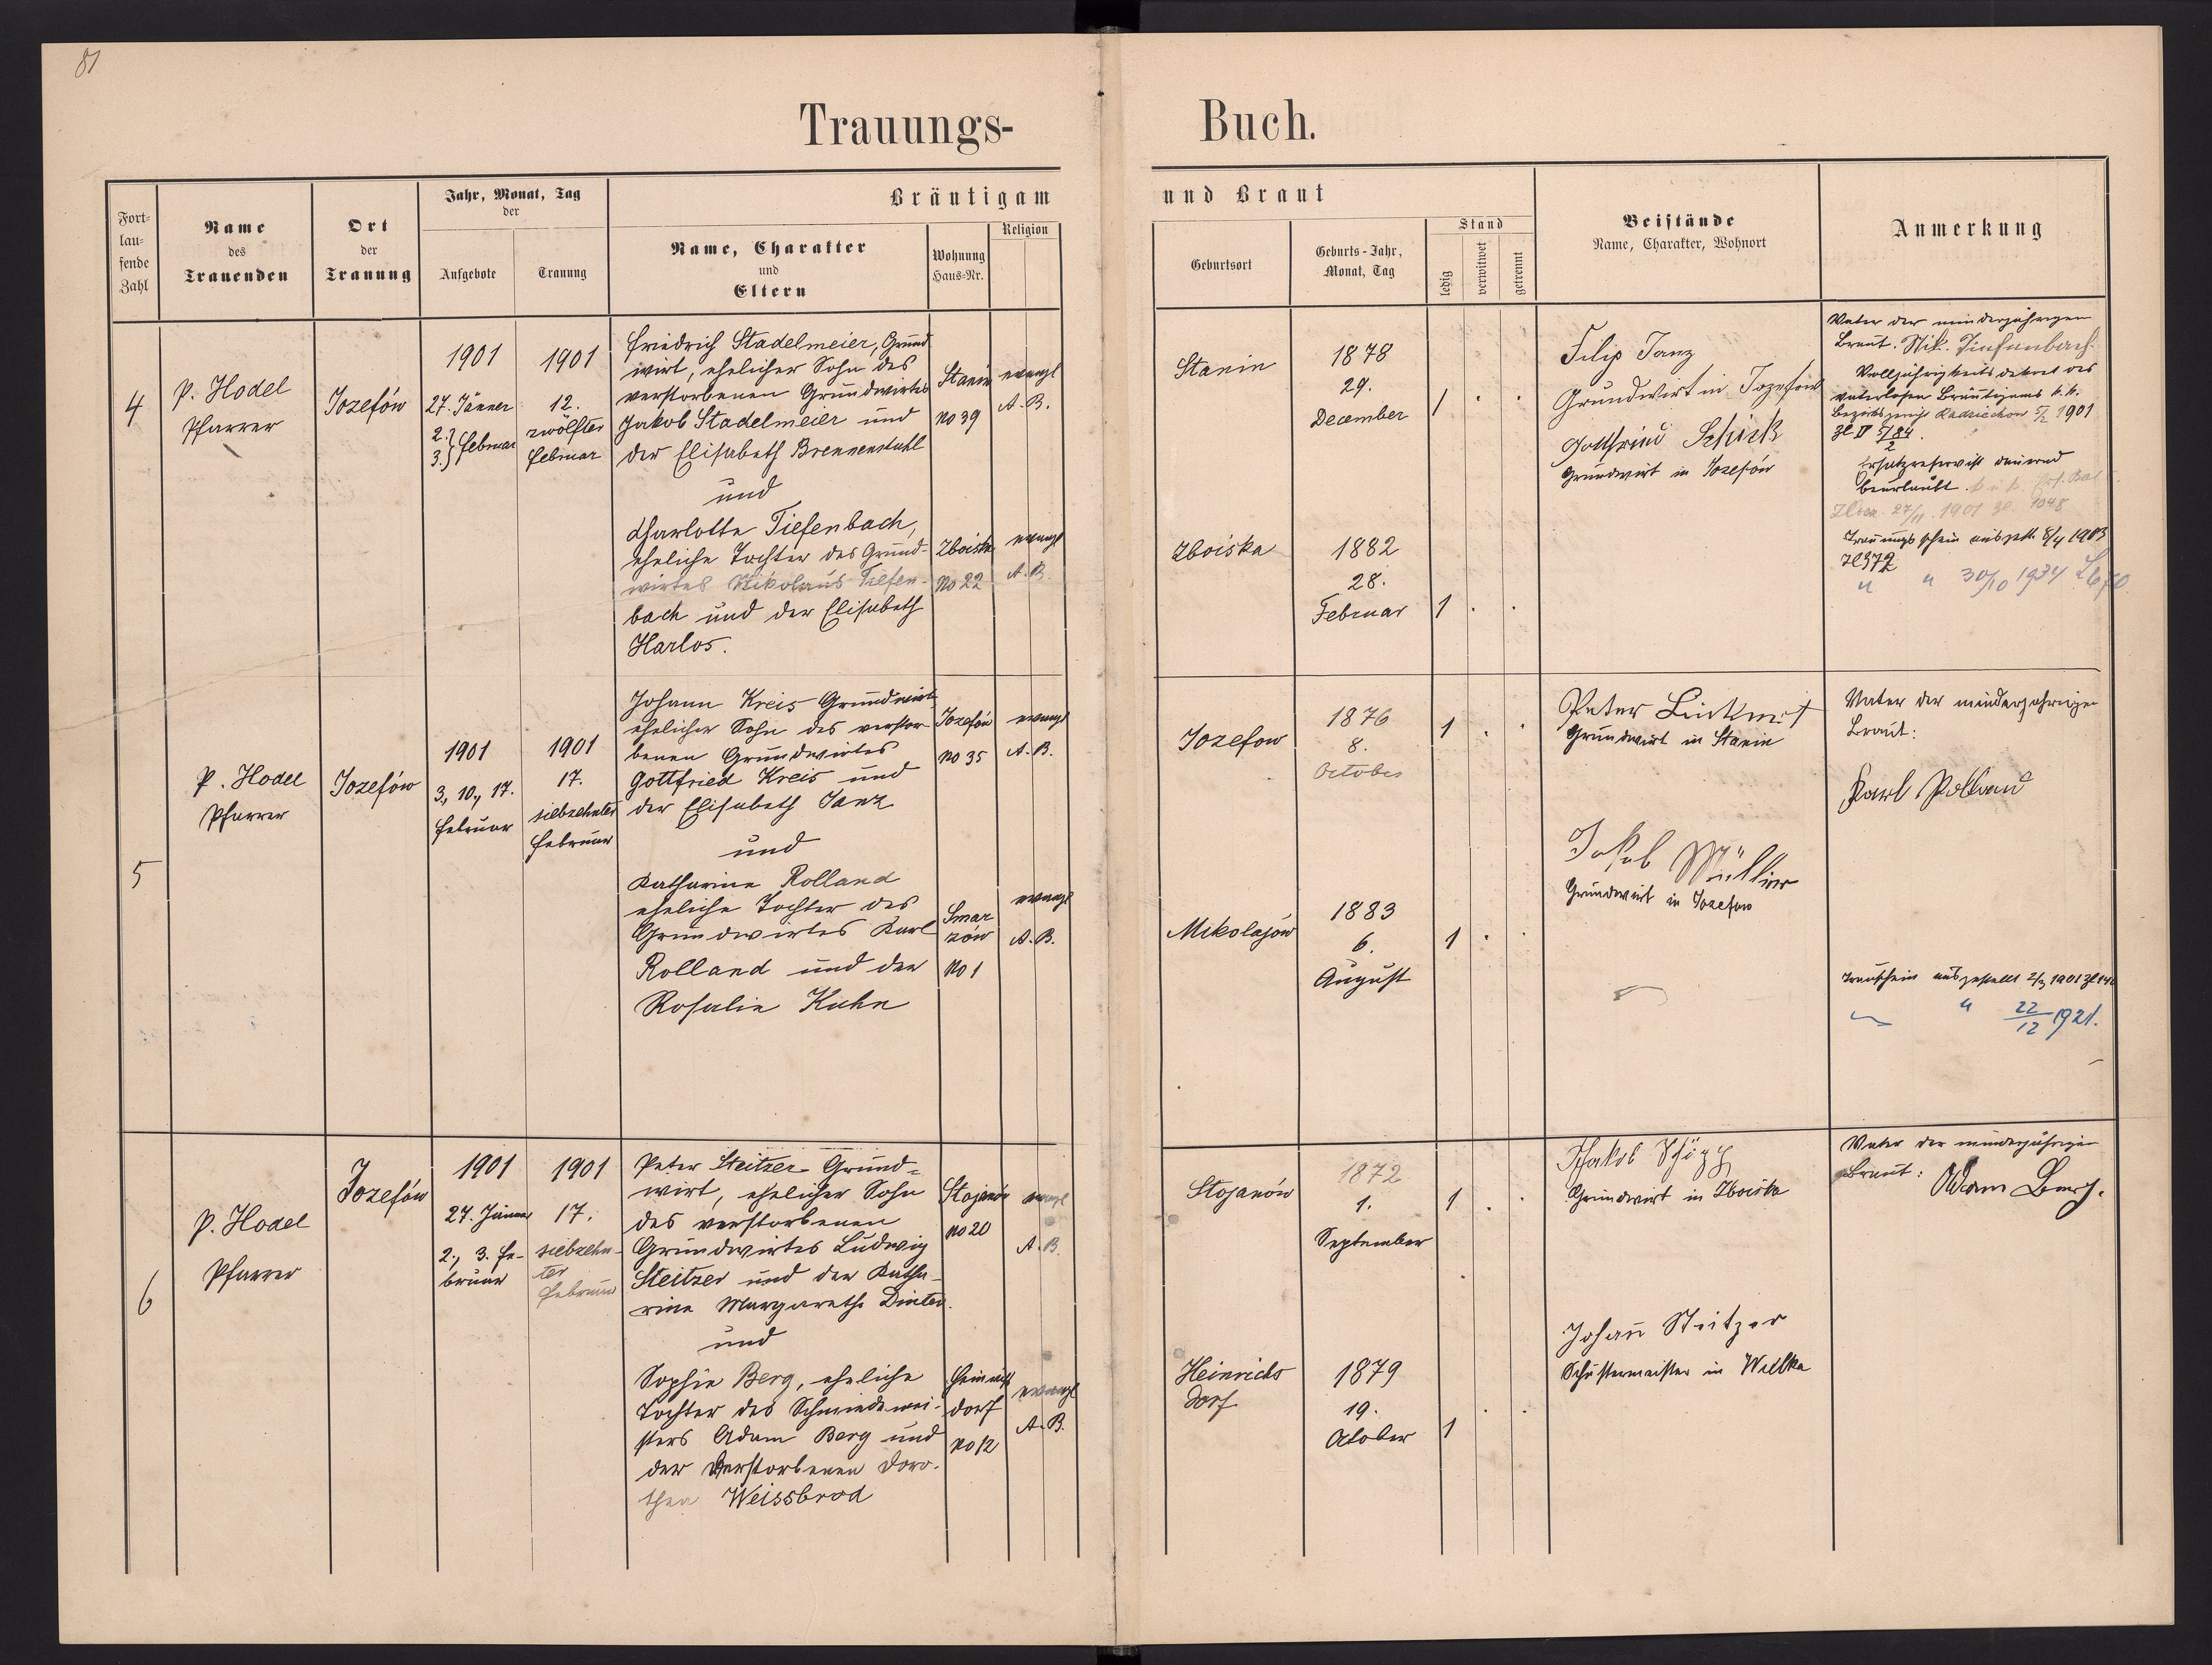 81
Trauungs-
Buch.
Fort-
lau-
fende
Zahl
Name
des
Trauenden
Ort
der
Trauung
Jahr, Monat, Tag
der
Aufgebote
Trauung
Bräutigam
Name, Charakter
und
Eltern
Wohnung
Haus-Nr.
Religion
und Braut
Geburtsort
Geburts-Jahr,
Monat, Tag
Stand
ledig
verwitwet
getrennt
Beistände
Name, Charakter, Wohnort
Anmerkung
4
P. Hodel
Pfarrer
Jozefów
1901
27. Jänner
2.
3. } Februar
1901
12.
zwölfter
Februar
Friedrich Stadelmeier, Grund
wirt, ehelicher Sohn des
verstorbenen Grundwirtes
Jakob Stadelmeier und
der Elisabeth Brennenstuhl
und
Charlotte Tiefenbach,
eheliche Tochter des Grund-
wirtes Nikolaus Tiefen-
bach und der Elisabeth
Harlos.
Stanin
No 39
evangl
A. B.
Zboiska
No 22
evangl
A. B.
Stanin
1878
29.
December
1
Zboiska
1882
28.
Februar
1
Filip Janz
Grundwirt in Jozefow
Gottfried Schick
Grundwirt in Jozefów
Vater der minderjährigen
Braut. Nik. Tiefenbach
Volljährigkeitsdekret des
vaterlosen Bräutigams k. k.
Bezirksgericht Radziechow 5/2 1901
Ersatzreservist dauernd
beurlaubt.
27/11. 1901 Zl. 1048
Trauungsschein ausgest. 8/4 1903
Zl 372
" " 30/10 1934
5
P. Hodel
Pfarrer
Jozefów
1901
3., 10., 17.
Februar
1901
17.
siebzehnter
Februar
Johann Kreis Grundwirt
ehelicher Sohn des verstor-
benen Grundwirtes
Gottfried Kreis und
der Elisabeth Janz
und
Katharina Rolland
eheliche Tochter des
Grundwirtes Karl
Rolland und der
Rosalie Kuhn
Jozefów
No 35
evangl
A. B.
Smar
zów
No 1
evangl
A. B.
Jozefow
1876
8.
October
1
Mikolajów
1883
6.
August
1
Peter
Grundwirt in Stanin
Jakob Müller
Grundwirt in Jozefow
Vater der minderjährigen
Braut:
Karl Rolland
Trauschein ausgestellt 2/3 1901 Zl 140
" 22/12 1921.
6
P. Hodel
Pfarrer
Jozefów
1901
27. Jänner
2., 3. Fe-
bruar
1901
17.
siebzehn-
ter
Februar
Peter Steitzer Grund-
wirt, ehelicher Sohn
des verstorbenen
Grundwirtes Ludwig
Steitzer und der Katha-
rine Margarethe Dinter.
und
Sophie Berg, eheliche
Tochter des Schmiedemei-
sters Adam Berg und
der Verstorbenen Doro-
thea Weissbrod
Stojanów
No 20
evangl
A. B.
Heinrichs
dorf
No 12
evangl
A. B.
Stojanów
1872
1.
September
1
Heinrichs
dorf
1879
19.
October
1
Jakob
Grundwirt in Zboiska
Johann Steitzer
Schustermeister in Wulka
Vater der minderjährigen
Braut: Adam Berg.